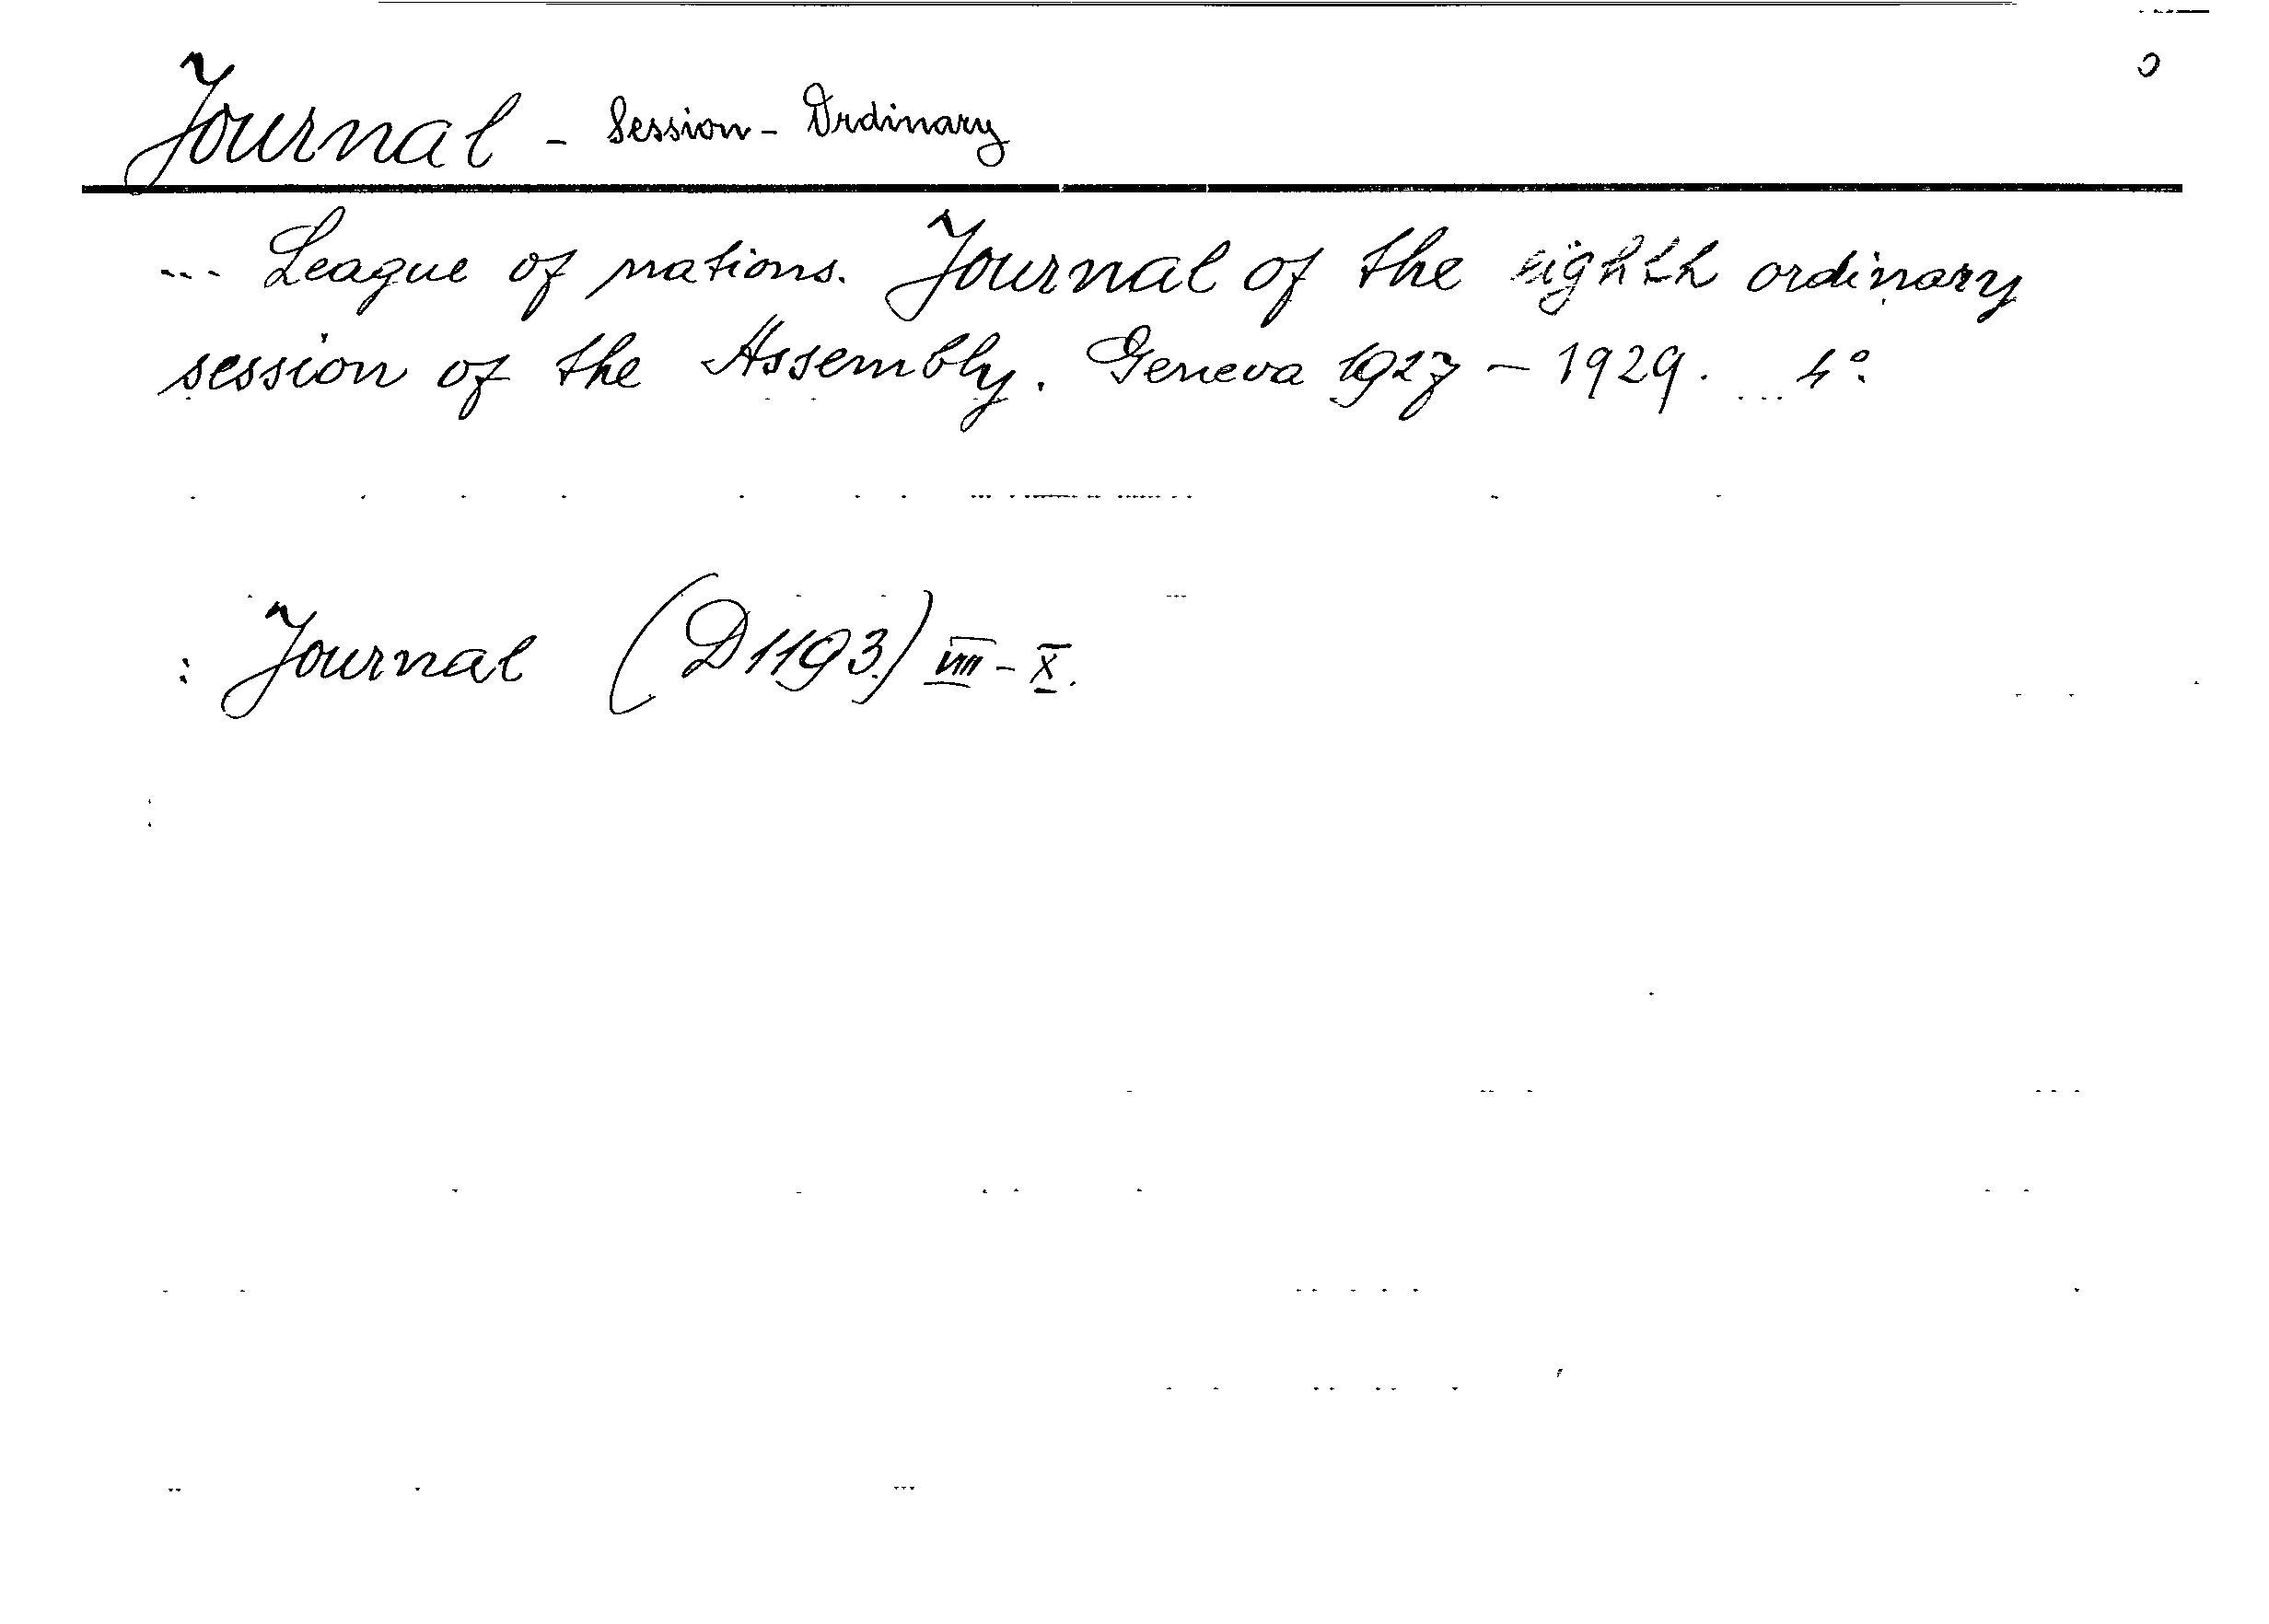 Journal - Session - Ordinary
... League of nations. Journal of the eighth ordinary
session of the Assembly. Geneva 1927 - 1929. 4°.
: Journal (D1193) VIII - X.